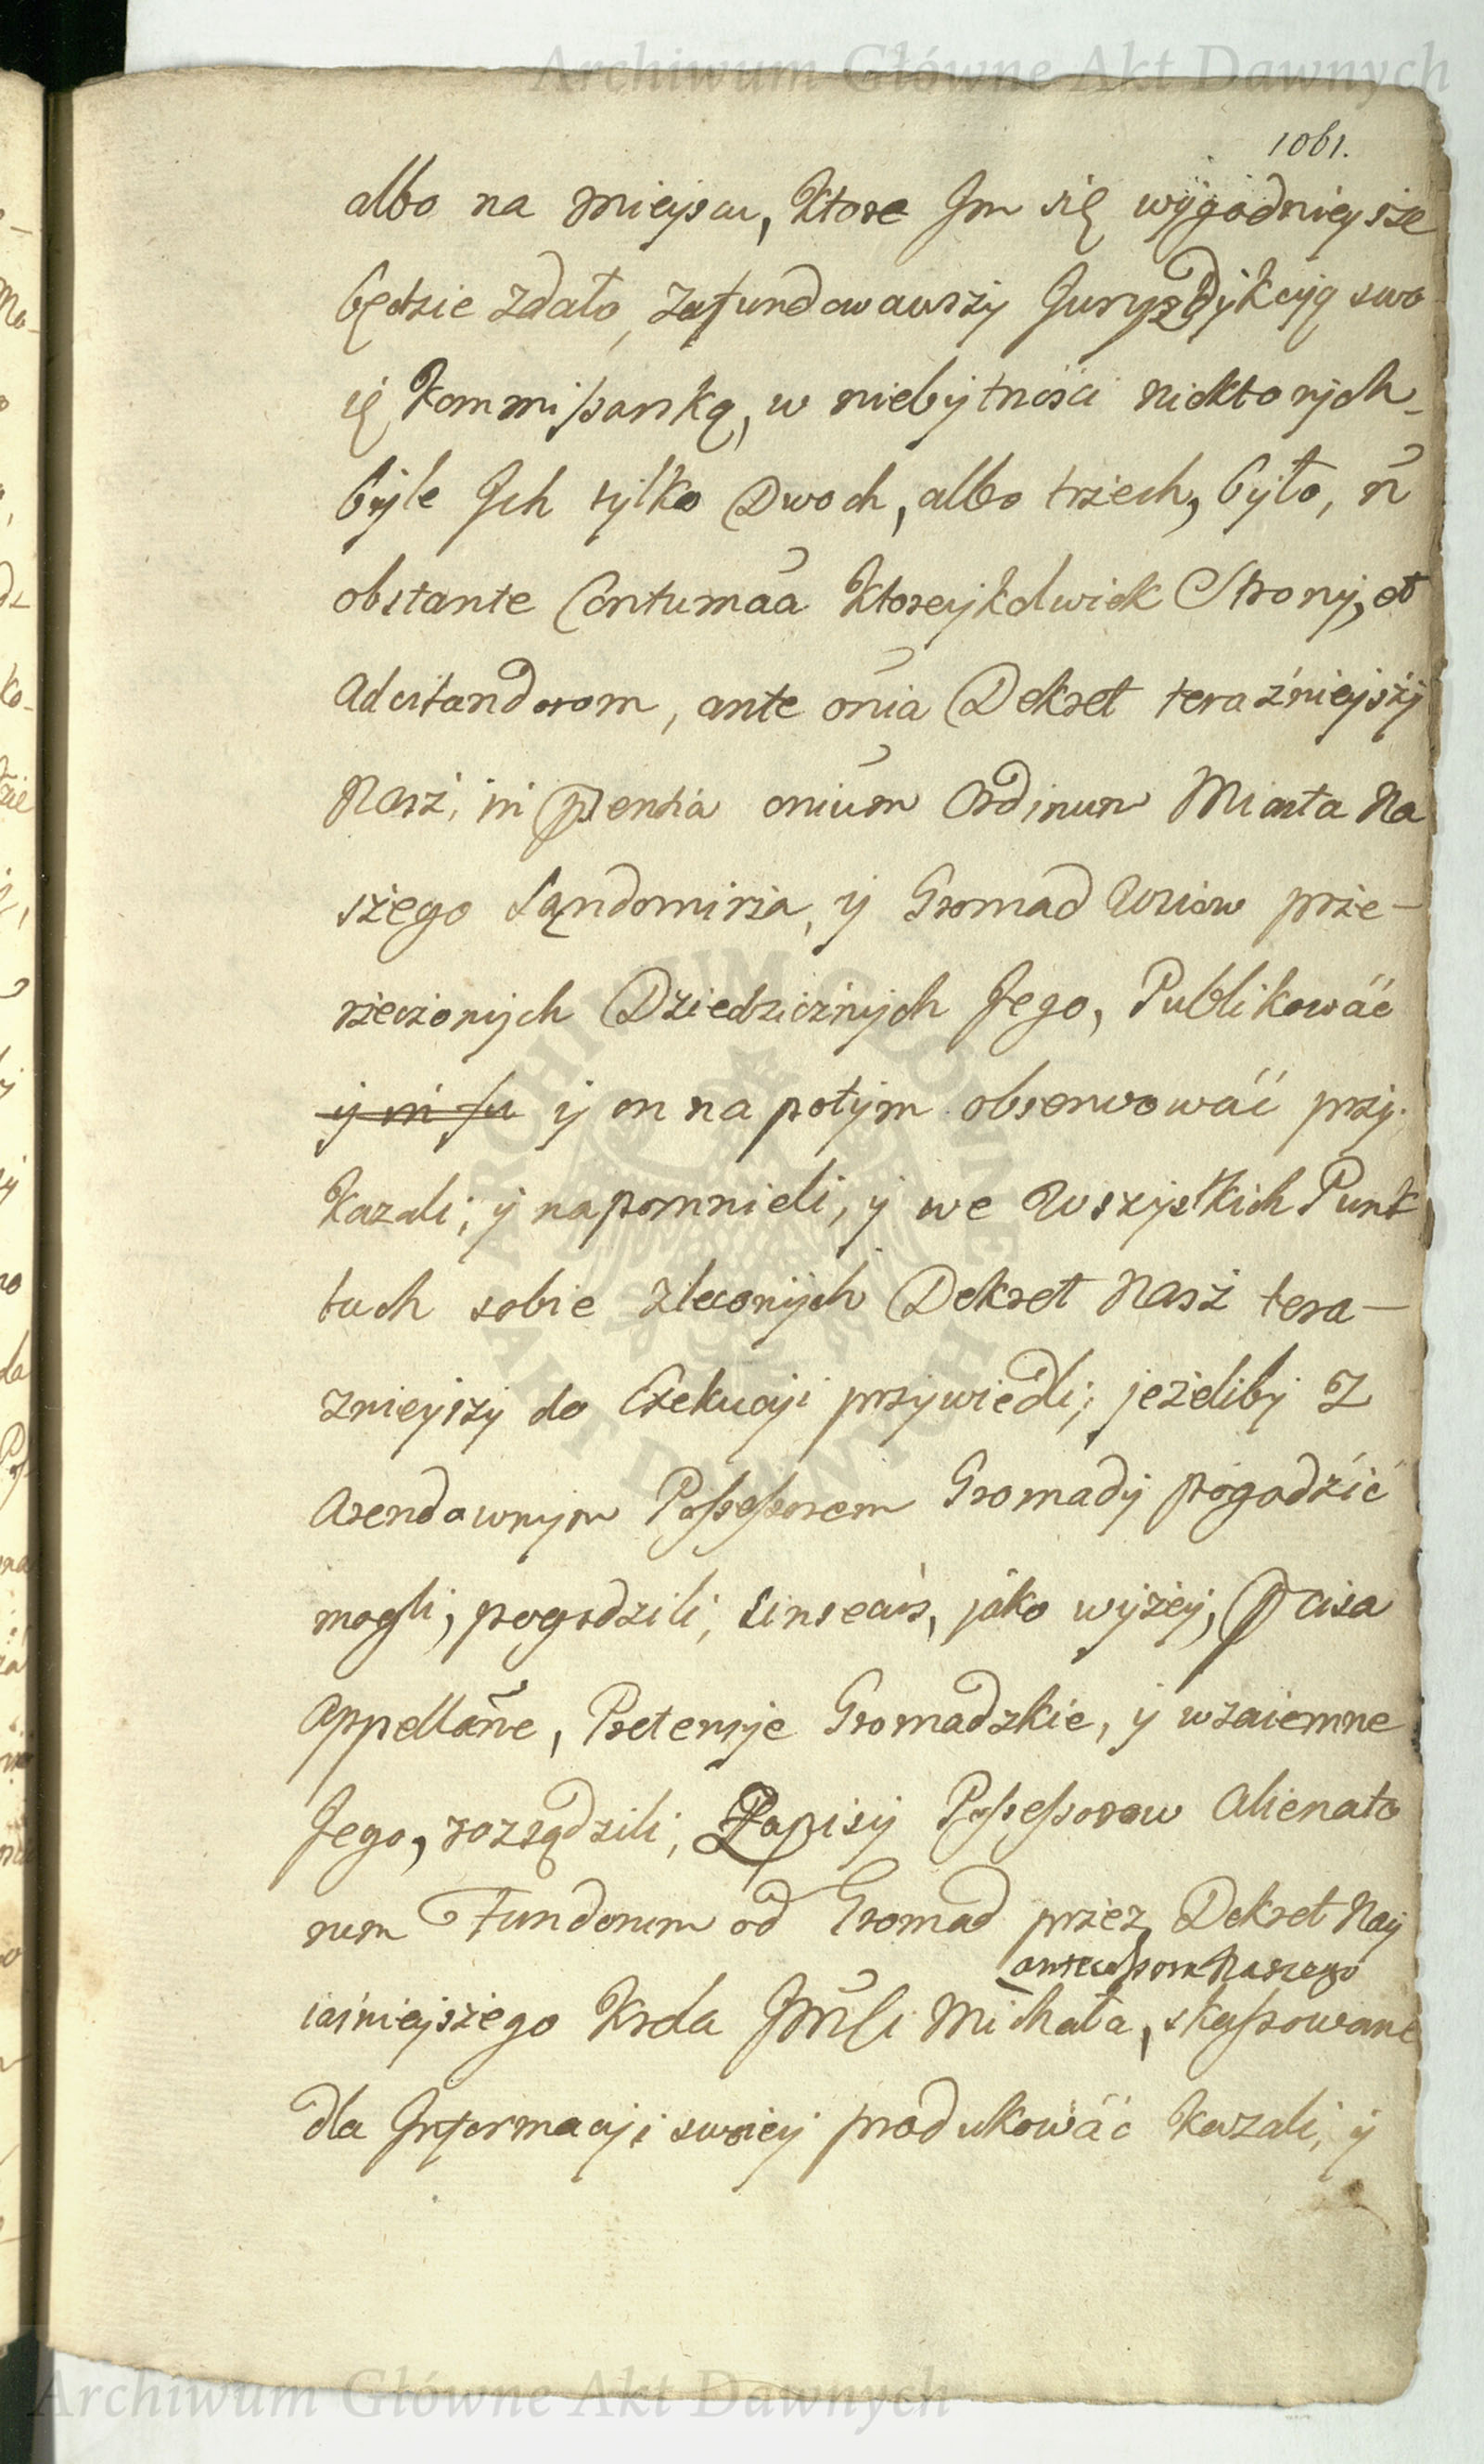 Archiwum Główne Akt Dawnych
1061.
albo na mieyscu, ktore Jm się wÿgodnieysze
będzie zdało, zafundowawszÿ Juryzdÿkcÿą swo
ię Kommissarską, w niebÿtności niektorÿch
bÿle Jch tÿlko Dwoch, albo trzech, bÿło, n̄
obstante Contumã Ktoreÿkolwiek Stronÿ, et
adcitandorom, ante on̄ia Dekret teraźnieÿszÿ
Nasz, in pn̄sentia oniūm Ordinum Miasta Na
szego Sandomirza, ÿ Gromad Wsiow prze-
rzeczonÿch Dziedzicznÿch Jego, Publikowáć
ÿ in fu ÿ on na potÿm obserwowáć przÿ-
kazali, ÿ napomnieli, ÿ we Wszÿstkich Punk
tach sobie zleconÿch Dekret Nasz tera-
znieyszÿ do Exekucÿi przÿwiedli; jeżelibÿ z
Arendownÿm Possessorem Gromadÿ pogodźić
mogli, pogodzili, sin secus, jáko wÿżeÿ, p̄cisa
Appellãne, Pretensje Gromadzkie, ÿ wzaiemne
Jego, rozsądzili, Zapisÿ Possessorow Alienato
rum Fundorum od Gromad przez Dekret Naÿ
antecessora Naszego
iaśnieÿszego Krola Jm̄śći Michała, skassowane
dla Jnformacÿi swoieÿ produkowáć kazali, ÿ
ARCHIWUM GŁÓWNE AKT DAWNYCH
Archiwum Główne Akt Dawnych